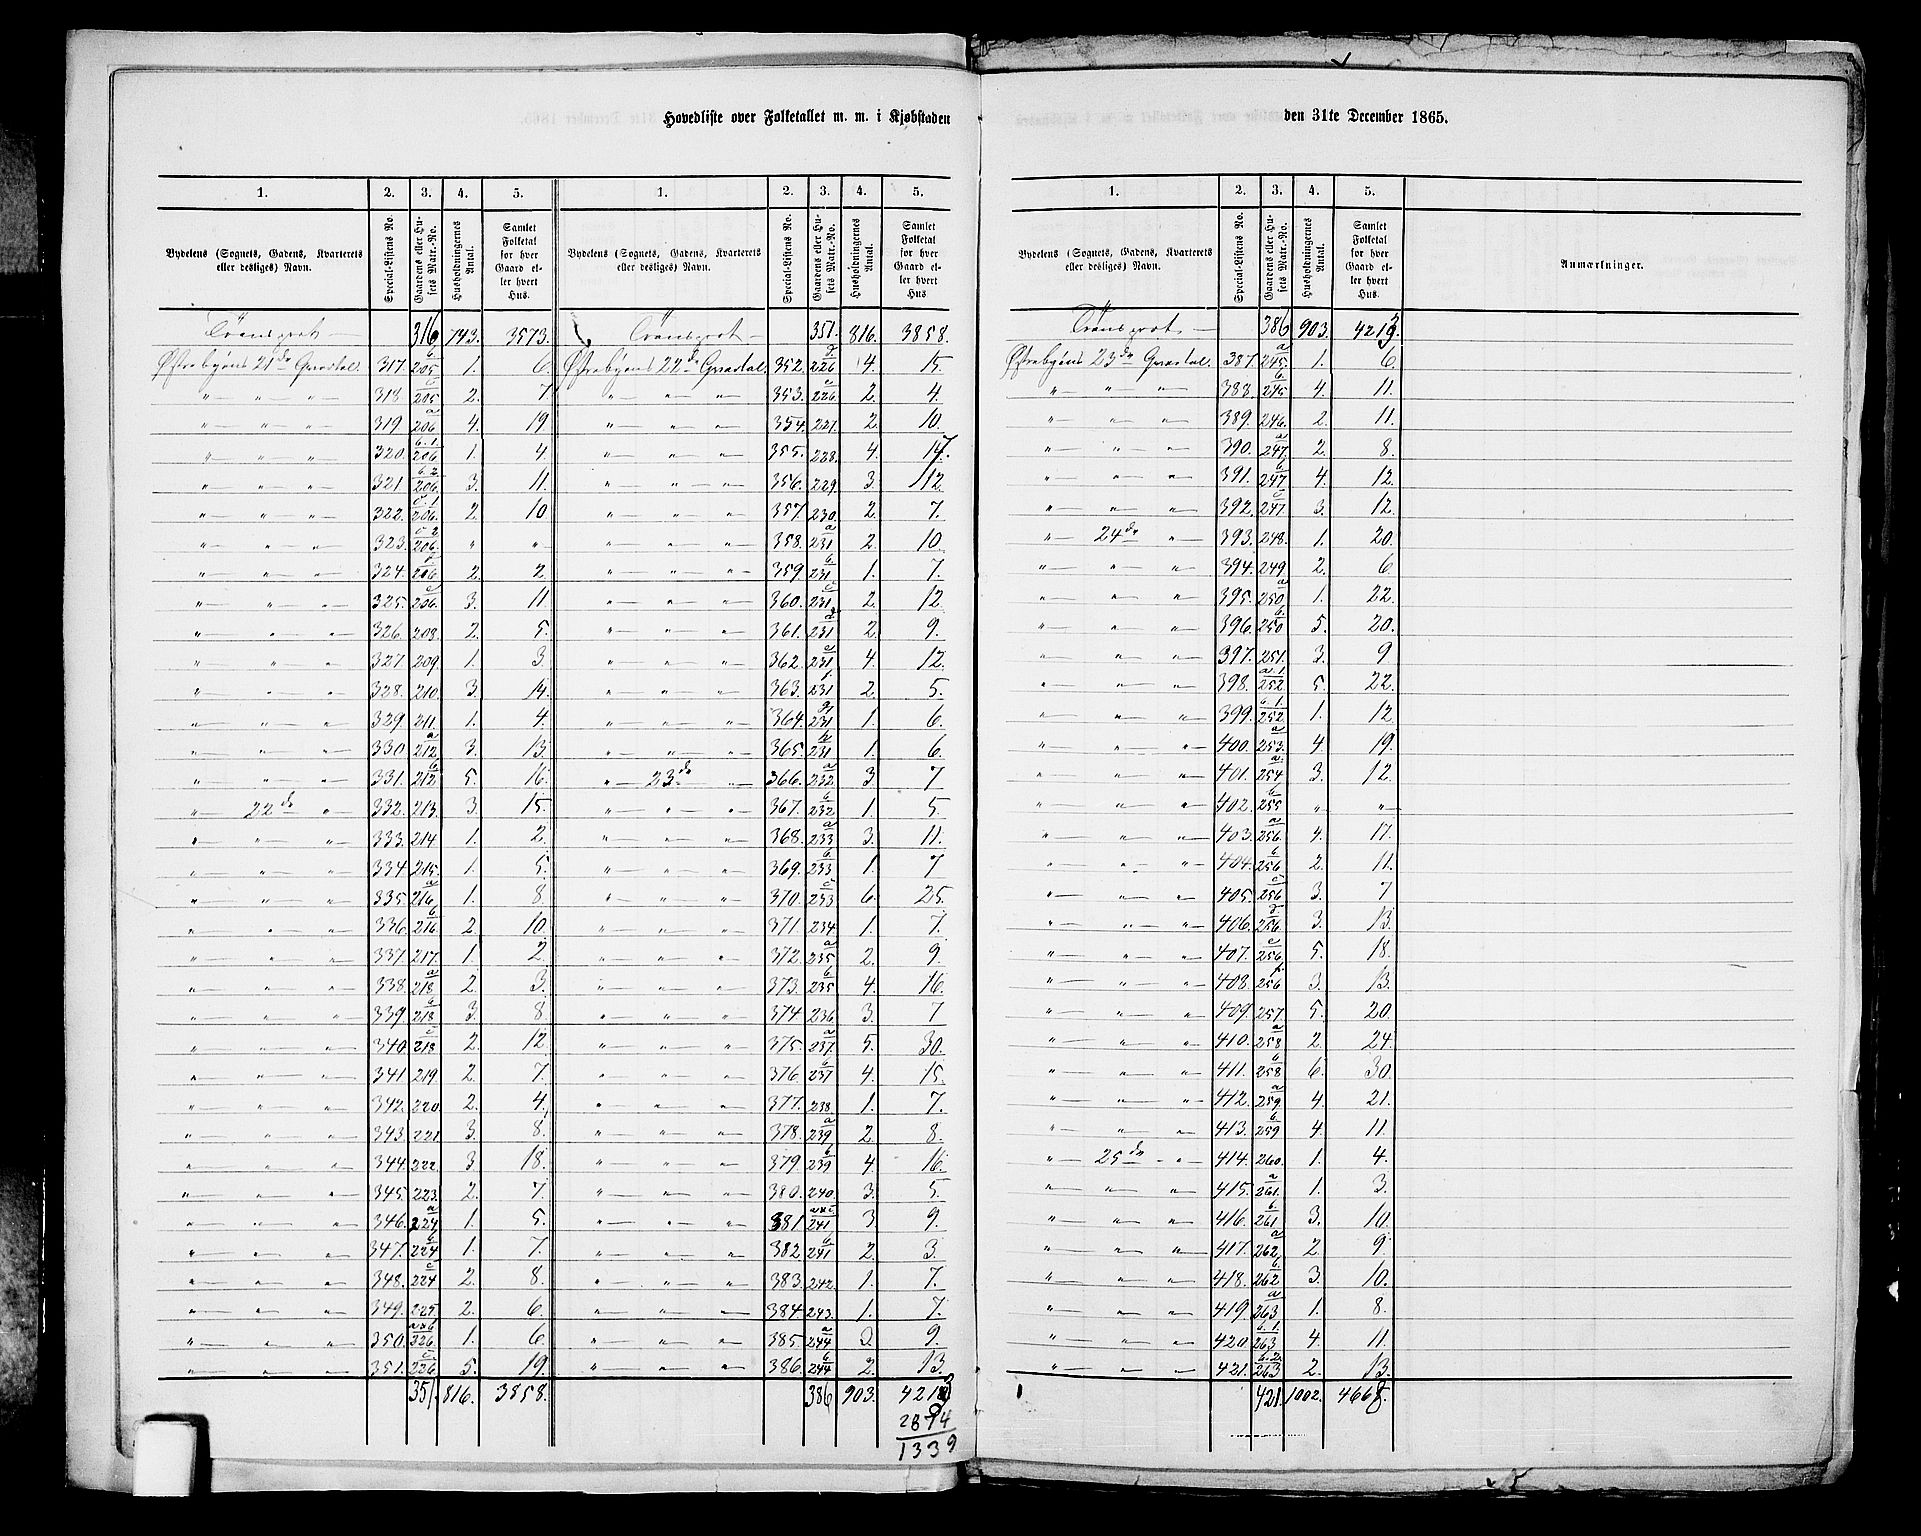 Hovedliste over Folketallet m. m. i Kjøbstaden den 31te December 1865.
1. 2. 3. 4. 5. 1. 2. 3. 4. 5.
Bydelens (Sognets, Gadens, Kvarterets eller desliges) Navn. Special-Listens No. Gaardens eller Husets Matr.-No. Husholdningernes Antal. Samlet Folketal for hver Gaard eller hvert Hus.
Bydelens (Sognets, Gadens, Kvarterets eller desliges) Navn. Special-Listens No. Gaardens eller Husets Matr.-No. Husholdningernes Antal. Samlet Folketal for hver Gaard eller hvert Hus
Transport 316 743. 3573. Transport 351. 816. 3858.
Østrebyens 21de Qvartal. 317. 205 b. 1. 6. Østrebyens 22de Qvartal. 352. 226 d. 4. 15.
" " " 318 205 c 2. 7. " " " 353. 226 e 2. 4.
" " " 319 206 a 4. 19 " " " 354. 227. 2. 10.
" " " 320. 206 b.1. 1. 4 " " " 355. 228. 4. 17.
" " " 321 206. b.2 3. 11. " " " 356. 229. 3. 12.
" " " 322. 206. c.1. 2. 10 " " " 357. 230. 2. 7.
" " " 323. 206. c.2 " " " " " 358. 231 a 2. 10
" " " 324. 206 d. 2. 2. " " " 359. 231. b. 1. 7.
" " " 325. 206. e 3. 11. " " " 360. 231. c 2. 12
" " " 326. 208. 2. 5. " " " 361. 231 d 2. 9.
" " " 327. 209. 1. 3. " " " 362. 231 e 4. 12
" " " 328. 210. 3. 14. " " " 363. 231 f. 2. 5.
" " " 329. 211. 1. 4. " " " 364. 231 g 1. 6.
" " " 330. 212. a 3. 13. " " " 365. 231 h 1. 6.
" " " 331. 212 b 5. 16. " 23de " 366. 232. a 3. 7
" 22de " 332. 213. 3 15. " " " 367. 232 b 1. 5.
" " " 333. 214. 1. 2. " " " 368. 233 a 3. 11.
" " " 334 215. 1. 5. " " " 369. 233 b 1. 7
" " " 335. 216. a 1. 8. " " " 370. 233 c 6. 25.
" " " 336 216. b 2 10. " " " 371. 234. 1. 7.
" " " 337. 217. 1. 2. " " " 372. 235 a 2. 9.
" " " 338. 218 a 2. 3. " " " 373. 235 b 4. 16.
" " " 339 218 b 3. 8. " " " 374. 236 3. 7
" " " 340. 218 c 2. 12 " " " 375. 237. a 5. 30.
" " " 341 219. 2. 7. " " " 376. 237 b 4. 15.
" " " 342. 220. 2. 4. " " " 377. 238. 1. 7.
" " " 343. 221 3. 8. " " " 378. 239. a 2. 8.
" " " 344. 222. 3 18. " " " 379. 239 b 4. 16.
" " " 345. 223. 2. 7. " " " 380. 240. 3. 5.
" " " 346. 224 a 1. 5. " " " 381 241 a&c 3 9.
" " " 347. 224 b 1. 7. " " " 382 241 b 2. 3.
" " " 348. 224 c 2. 8. " " " 383. 242. 1. 7.
" " " 349. 225. 2. 6. " " " 384 243. 1. 7.
" " " 350. 226. a&b 1. 6. " " " 385. 244 a 9.
" " " 351. 226 c 5. 19. " " " 386. 244 b 2. 13.
351. 816. 3858. 386 903. 4213
2874
1339
1. 2. 3. 4. 5.
Bydelens (Sognets, Gadens, Kvarterets eller desliges) Navn. Special-Listens No. Gaardens eller Husets Matr.-No. Husholdningernes Antal. Samlet Folketal for hver Gaard eller hvert Hus. Anmærkninger.
Transport 386 903. 4213.
Østrebyens 23de Qvartal. 387. 245. a 1. 6.
" " " 388. 245 b. 4. 11.
" " " 389. 246. 2. 11.
" " " 390. 247. a 2 8.
" " " 391. 247 b 4. 12.
" " " 392. 247. c 3. 12.
" 24de " 393. 248. 1. 20.
" " " 394. 249. 2. 6.
" " " 395. 250. a 1. 22.
" " " 396. 250 b. 5. 20.
" " " 397. 251. 3. 9
" " " 398. 252 a.1. 5. 22.
" " " 399. 252. b.1. 1. 12.
" " " 400. 253. a 4. 19.
" " " 401. 254 a. 3. 12.
" " " 402. 255 b. " "
" " " 403. 256. a 4. 17.
" " " 404. 256 b 2. 11.
" " " 405. 256 c 3. 7
" " " 406. 256. d 3. 13.
" " " 407. 256. e 5. 18.
" " " 408. 256 f 3. 13.
" " " 409. 257. 5. 20.
" " " 410. 258 a 2. 24.
" " " 411. 258 b 6. 30.
" " " 412. 259. a 4. 21.
" " " 413. 259 b. 4. 11.
" 25de " 414. 260. 1. 4.
" " " 415. 261. a 1. 3.
" " " 416. 261 b. 3. 10.
" " " 417. 262. a 2 9.
" " " 418. 262 b. 3. 10.
" " " 419. 263 a 1. 8.
" " " 420. 263 b.1. 4. 11.
" " " 421. 263 b.2. 2. 13.
421. 1002. 4668.